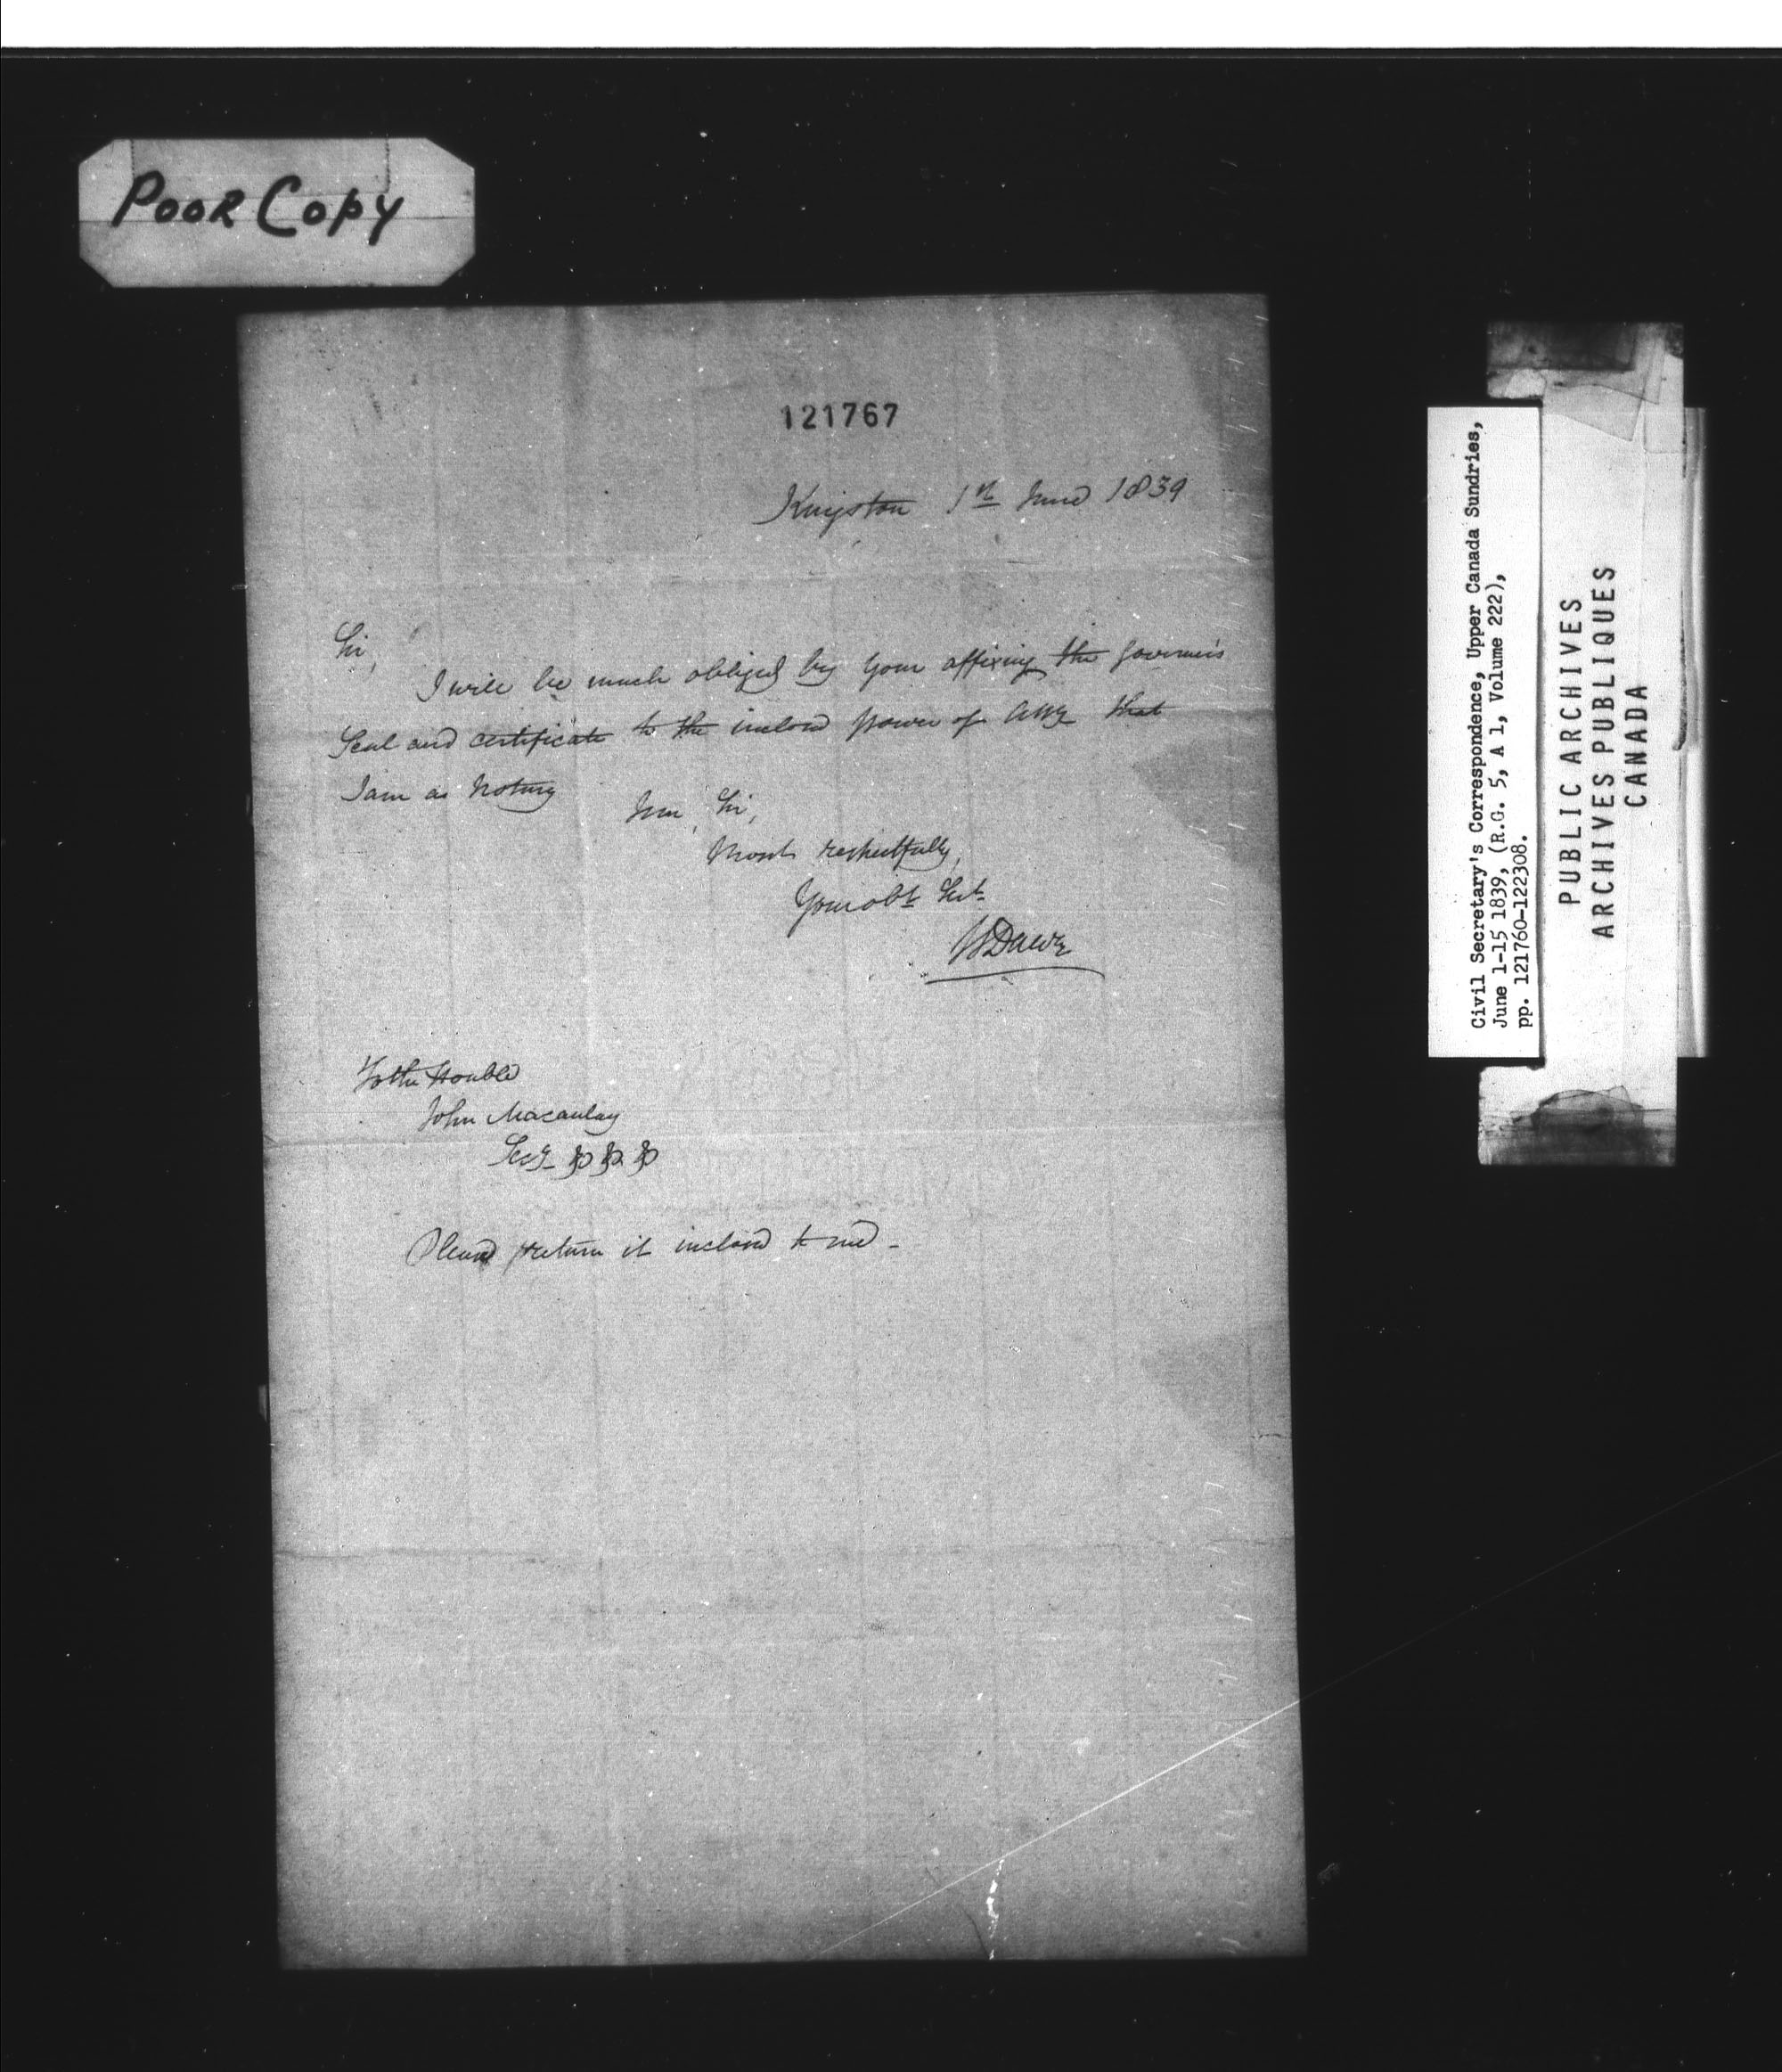 Poor Copy
121767
Kingston 1st June 1839
Sir,
I will be much obliged by your affixing the Governor's
Seal and certificate to the inclosed power of Atty that
I am a Notary
I am, Sir,
Most respectfully,
Your obt Sert
To the Honble
John Macaulay
Secy &c &c &c
Please return it inclosed to me -
Civil Secretary's Correspondence, Upper Canada Sundries,
June 1-15 1839, (R.G. 5, A 1, Volume 222),
pp. 121760-122308.
PUBLIC ARCHIVES
ARCHIVES PUBLIQUES
CANADA